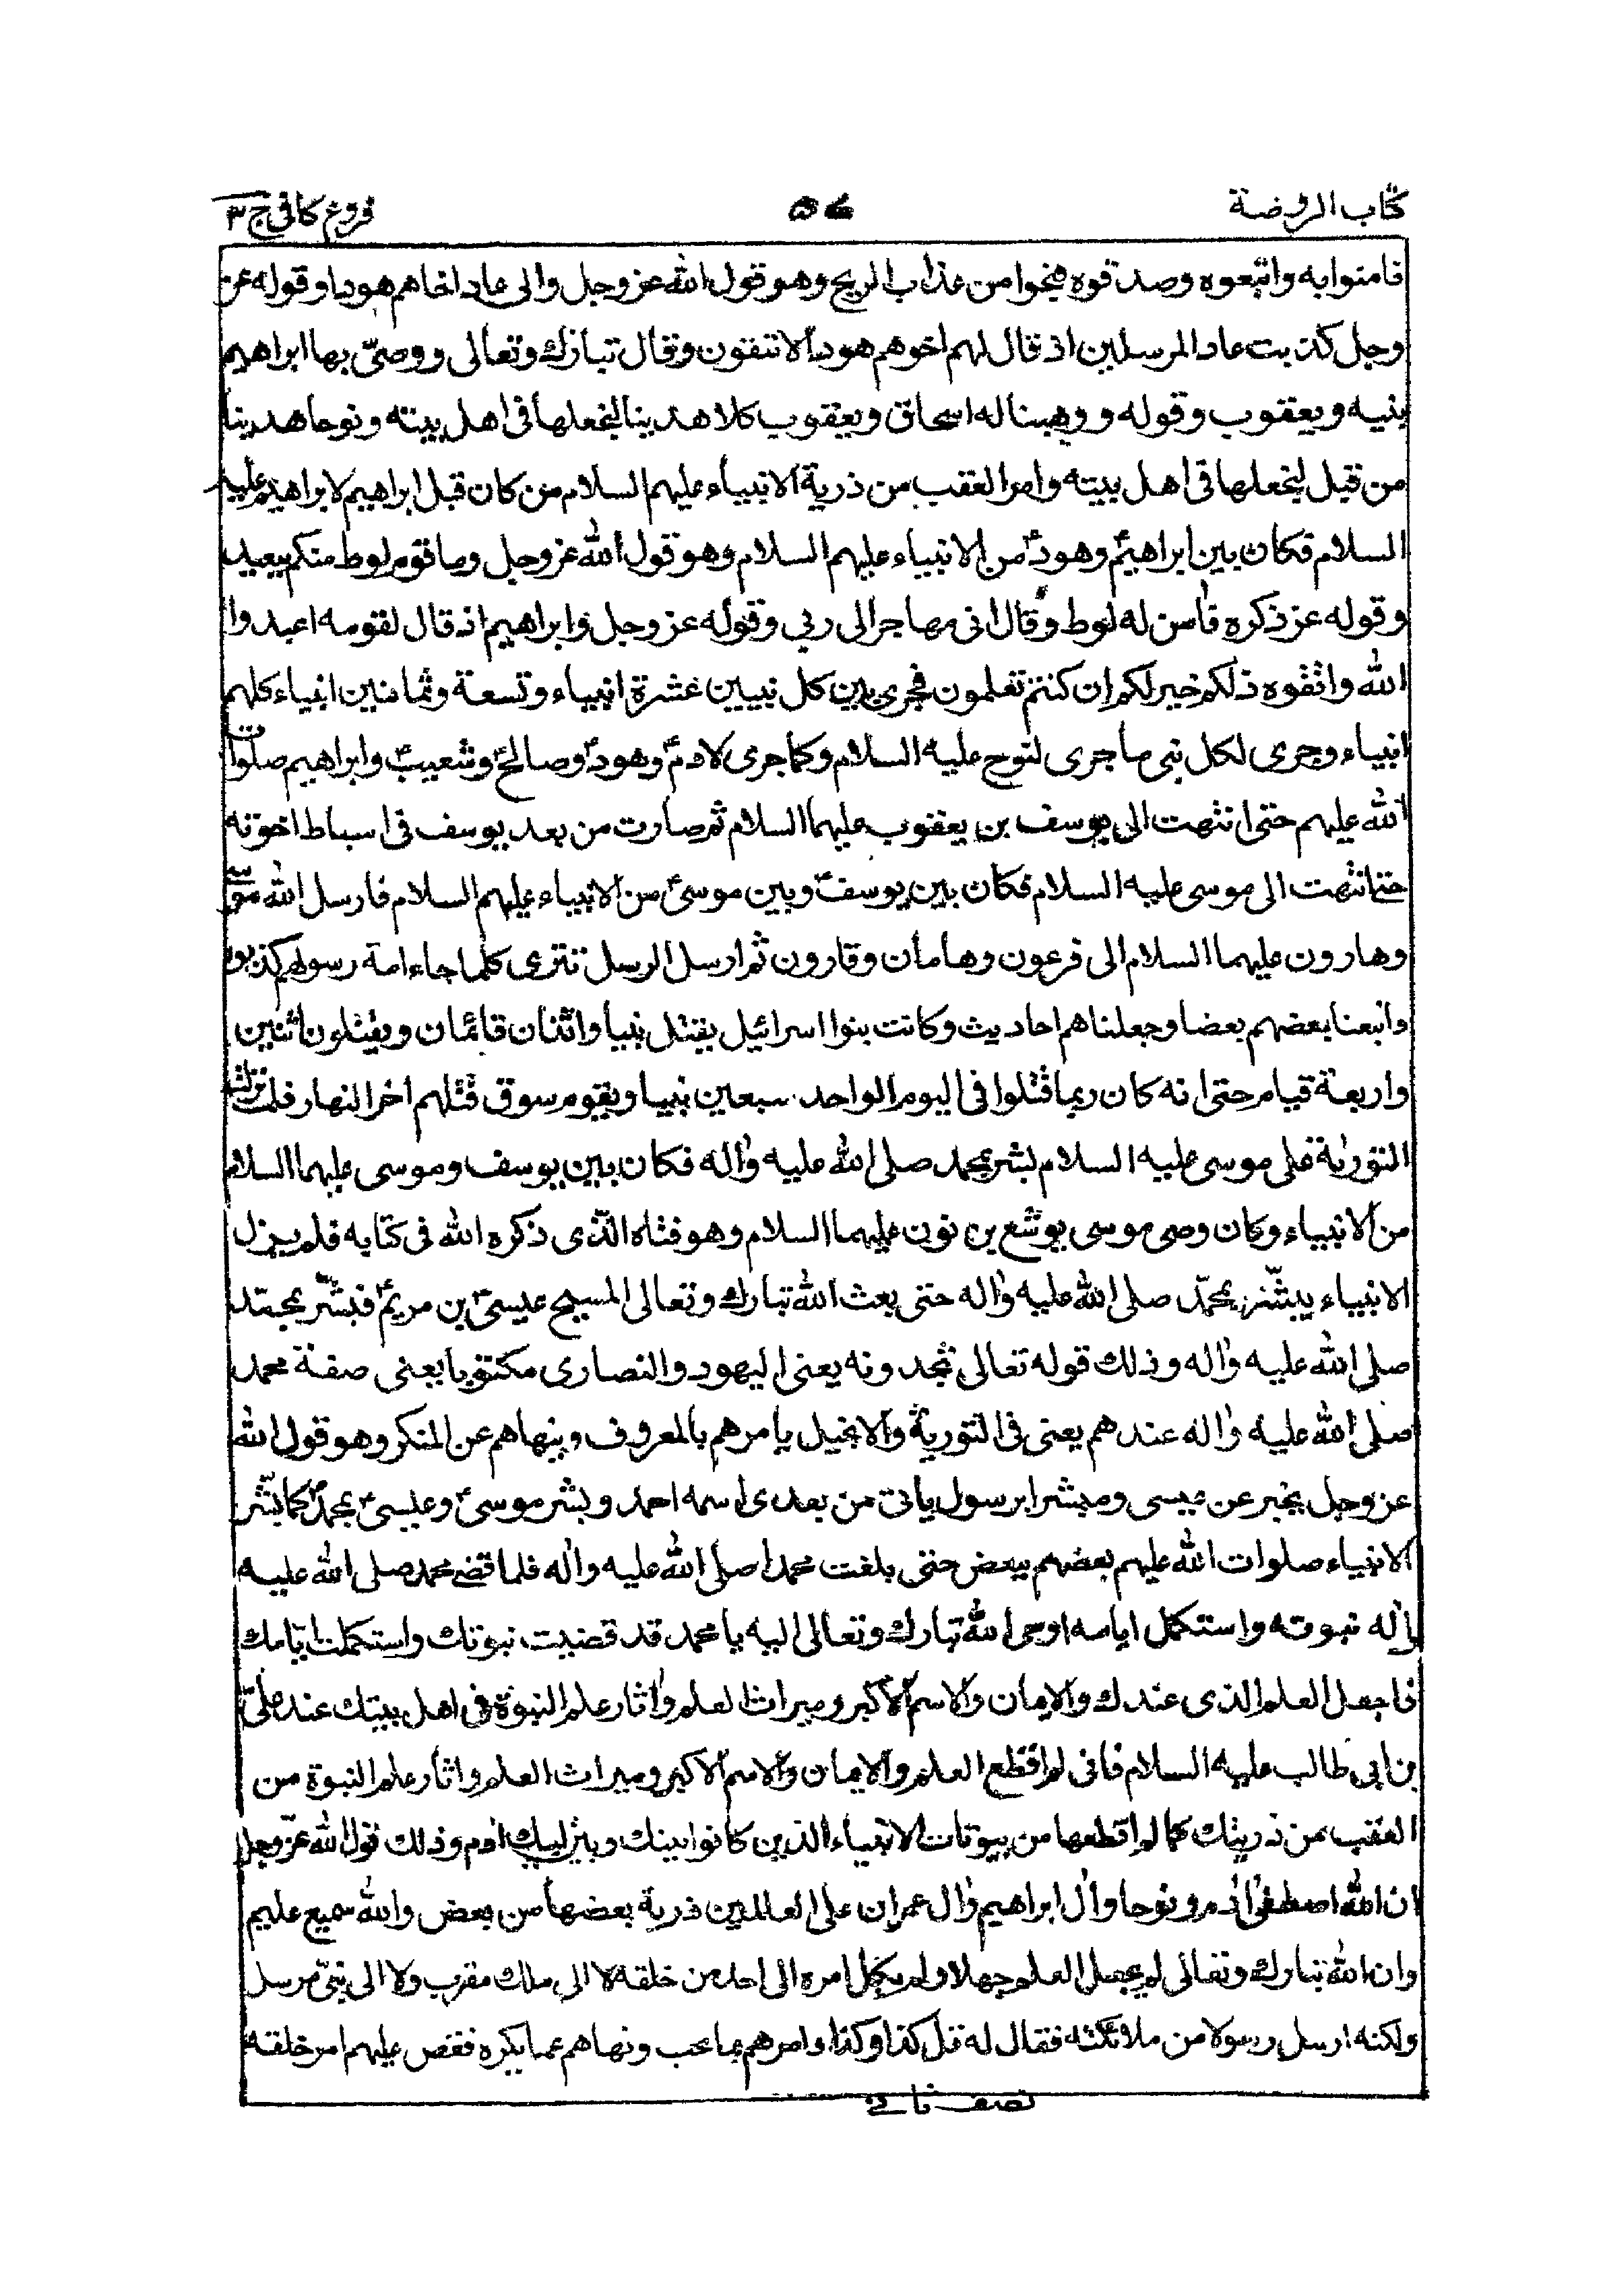 كتاب الروضة ٥٧ فروع كافى ج ٣
فامنوا به واتبعوه وصدقوه فنجوا من عذاب الريح وهو قول الله عز وجل والى عاد اخاهم هودا وقوله عز
وجل كذبت عاد المرسلين اذ قال لهم اخوهم هود ألا تتقون وقال تبارك وتعالى ووصّى بها ابراهيم
بنيه ويعقوب وقوله ووهبنا له اسحاق ويعقوب كلا هدينا لنجعلها فى اهل بيته ونوحا هدينا
من قبل لنجعلها فى اهل بيته وامر العقب من ذرية الانبياء عليهم السلام من كان قبل ابراهيم لابراهيم عليه
السلام فكان بين ابراهيمؑ وهودؑ من الانبياء عليهم السلام وهو قول الله عز وجل وما قوم لوط منكم ببعيد
وقوله عز ذكره فأمن له لوط وقال انى مهاجر الى ربي وقوله عز وجل وابراهيم اذ قال لقومه اعبدوا
الله واتقوه ذلكم خير لكم ان كنتم تعلمون فجرى بين كل نبيين عشرة انبياء وتسعة وثمانين انبياء كلهم
انبياء وجرى لكل نبى ما جرى لنوح عليه السلام وكما جرى لادمؑ وهودؑ وصالحؑ وشعيبؑ وابراهيم صلوات
الله عليهم حتى انتهت الى يوسف بن يعقوب عليهما السلام ثم صارت من بعد يوسف فى اسباط اخوته
حتى انتهت الى موسى عليه السلام فكان بين يوسفؑ وبين موسىؑ من الانبياء عليهم السلام فارسل الله موسى
وهارون عليهما السلام الى فرعون وهامان وقارون ثم ارسل الرسل تترى كلما جاء امة رسولهم كذبوه
واتبعنا بعضهم بعضا وجعلناهم احاديث وكانت بنوا اسرائيل يقتل نبيا واثنان قائمان ويقتلون اثنين
واربعة قيام حتى انه كان ربما قتلوا فى اليوم الواحد سبعين نبيا ويقوم سوق قتلهم اخر النهار فلما نزلت
التورٰية على موسى عليه السلام بشر بمحمد صلى الله عليه واٰله فكان بين يوسف وموسى عليهما السلام
من الانبياء وكان وصى موسى يوشع بن نون عليهما السلام وهو فتاه الذى ذكره الله فى كتابه فلم يزل
الانبياء يبشّر بمحمّد صلى الله عليه واٰله حتى بعث الله تبارك وتعالى المسيح عيسىؑ بن مريمؑ فبشّر بمحمّد
صلى الله عليه واٰله وذلك قوله تعالى تجدونه يعنى اليهود والنصارى مكتوبا يعنى صفة محمد
صلى الله عليه واٰله عندهم يعنى فى التورية والانجيل يامرهم بالمعروف وينهاهم عن المنكر وهو قول الله
عز وجل يخبر عن عيسى ومبشرا برسول ياتى من بعدى اسمه احمد وبشر موسىؑ وعيسىؑ بمحمدؐ كما بشّر
الانبياء صلوات الله عليهم بعضهم ببعض حتى بلغت محمدا صلى الله عليه واٰله فلما قضى محمد صلى الله عليه
واٰله نبوته واستكمل ايامه اوحى الله تبارك وتعالى اليه يا محمد قد قضيت نبوتك واستكملت ايّامك
فاجعل العلم الذى عندك والايمان والاسم الاكبر وميراث العلم واٰثار علم النبوة فى اهل بيتك عند علىّ
بن ابى طالب عليه السلام فانى لم اقطع العلم والايمان والاسم الاكبر وميراث العلم واثار علم النبوة من
العقب من ذريتك كما لم اقطعها من بيوتات الانبياء الذين كانوا بينك وبين ابيك ادم وذلك قول الله عزّ وجل
ان الله اصطفى اٰدم ونوحا واٰل ابراهيم واٰل عمران على العالمين ذرية بعضها من بعض والله سميع عليم
وان الله تبارك وتعالى لم يجعل العلم جهلا ولم يكل امره الى احد من خلقه لا الى ملك مقرب ولا الى نبىّ مرسل
ولكنه ارسل رسولا من ملائكته فقال له قل كذا وكذا وامرهم بما يحب ونهاهم عما يكره فقص عليهم امر خلقه
نصف ثانى